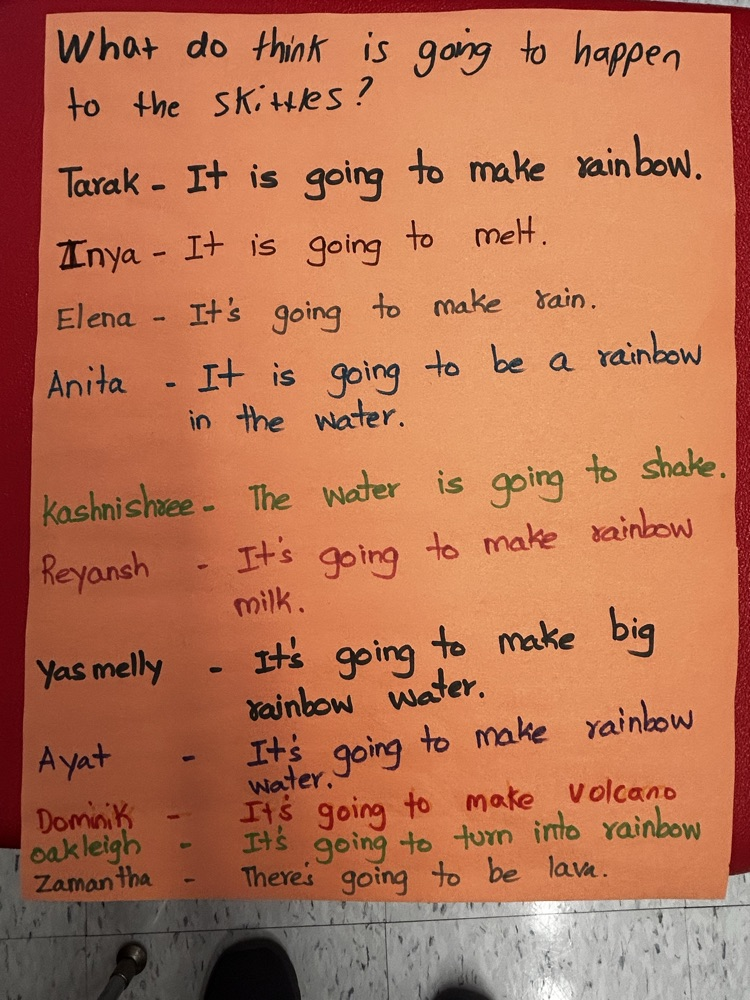 What do think is going to happen
to the skittles?
Tarak - It is going to make rainbow.
Inya - It is going to melt.
Elena - It's going to make rain.
Anita - It is going to be a rainbow
in the water.
Kashnishree - The water is going to shake.
Reyansh - It's going to make rainbow
milk.
Yasmelly - It's going to make big
rainbow water.
Ayat - It's going to make rainbow
water.
Dominik - It's going to make volcano
oakleigh - It's going to turn into rainbow
Zamantha - There's going to be lava.